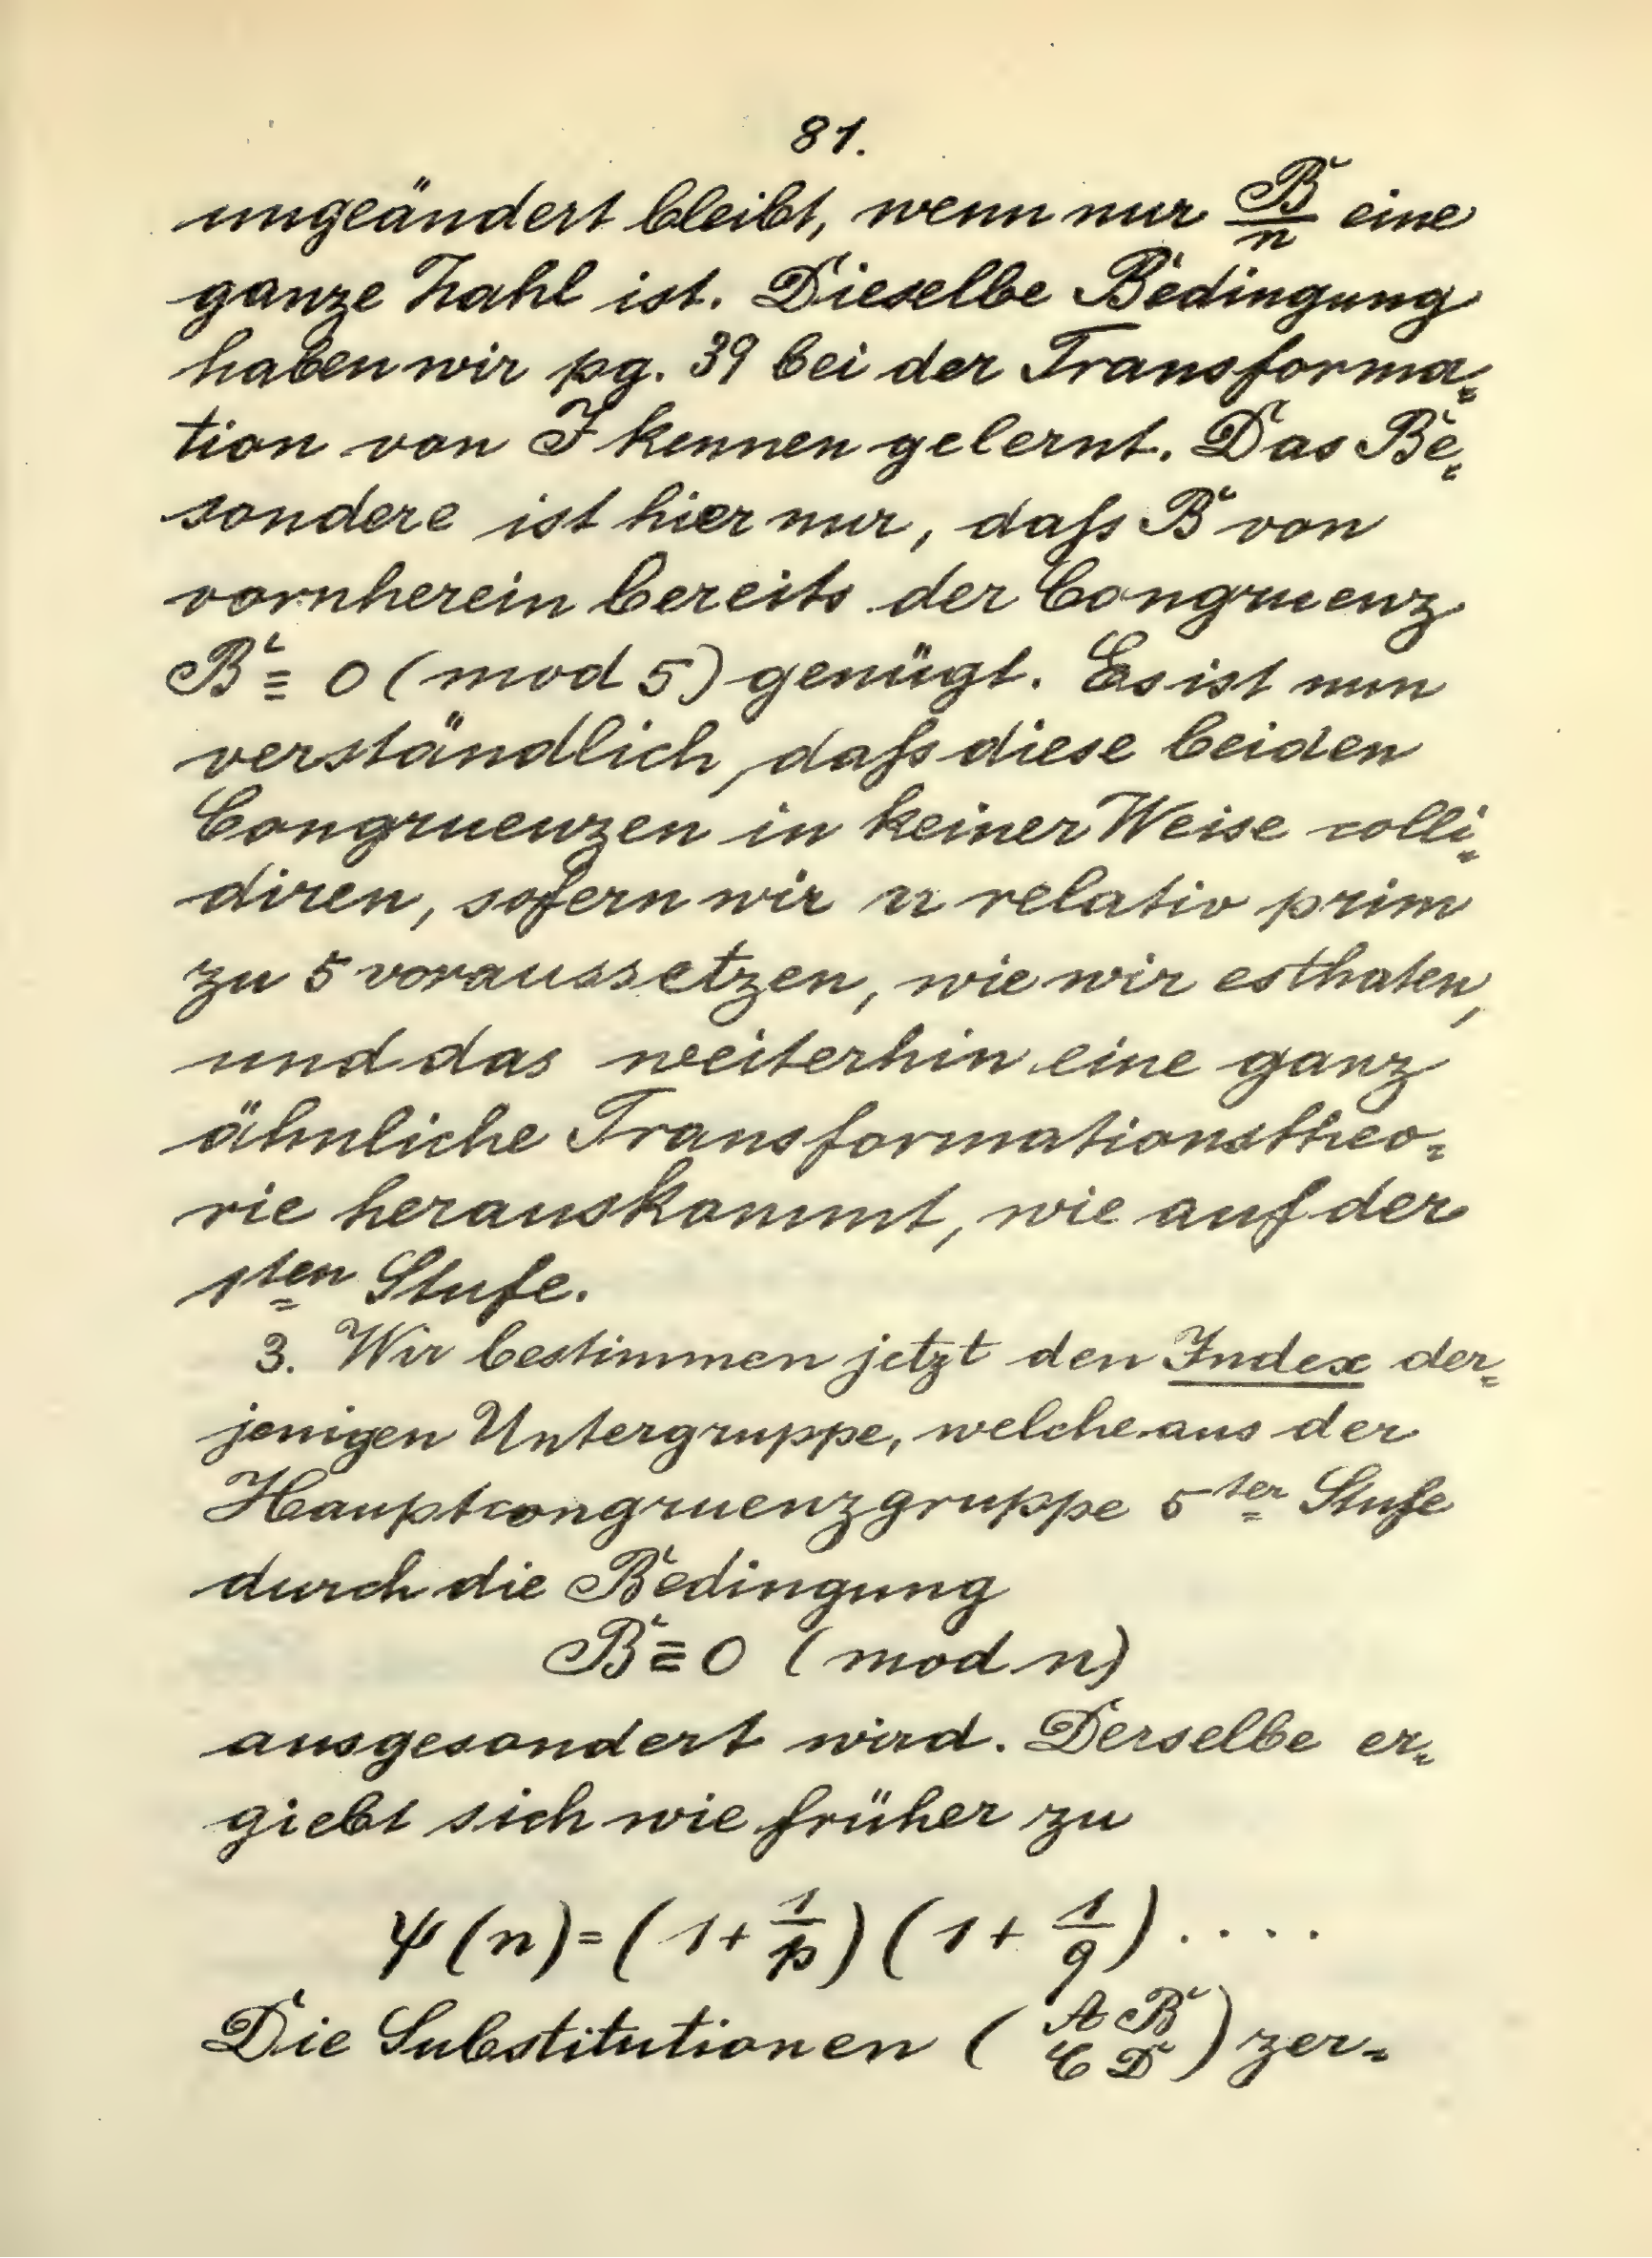 81.
ungeändert bleibt, wenn nur B/n eine
ganze Zahl ist. Dieselbe Bedingung
haben wir pg. 39 bei der Transforma-
tion von J kennen gelernt. Das Be-
sondere ist hier nur, daſs B von
vornherein bereits der Congruenz
B ≡ 0 (mod 5) genügt. Es ist nun
verständlich, daſs diese beiden
Congruenzen in keiner Weise colli-
diren, sofern wir n relativ prim
zu 5 voraussetzen, wie wir es thaten,
und das weiterhin eine ganz
ähnliche Transformationstheo-
rie herauskommt, wie auf der
1ten Stufe.
3. Wir bestimmen jetzt den Index der-
jenigen Untergruppe, welche aus der
Hauptcongruenzgruppe 5ter Stufe
durch die Bedingung
B ≡ 0 (mod n)
ausgesondert wird. Derselbe er-
giebt sich wie früher zu
ψ(n) = (1 + 1/p) (1 + 1/q) . . . . .
Die Substitutionen (A B
C D) zer-